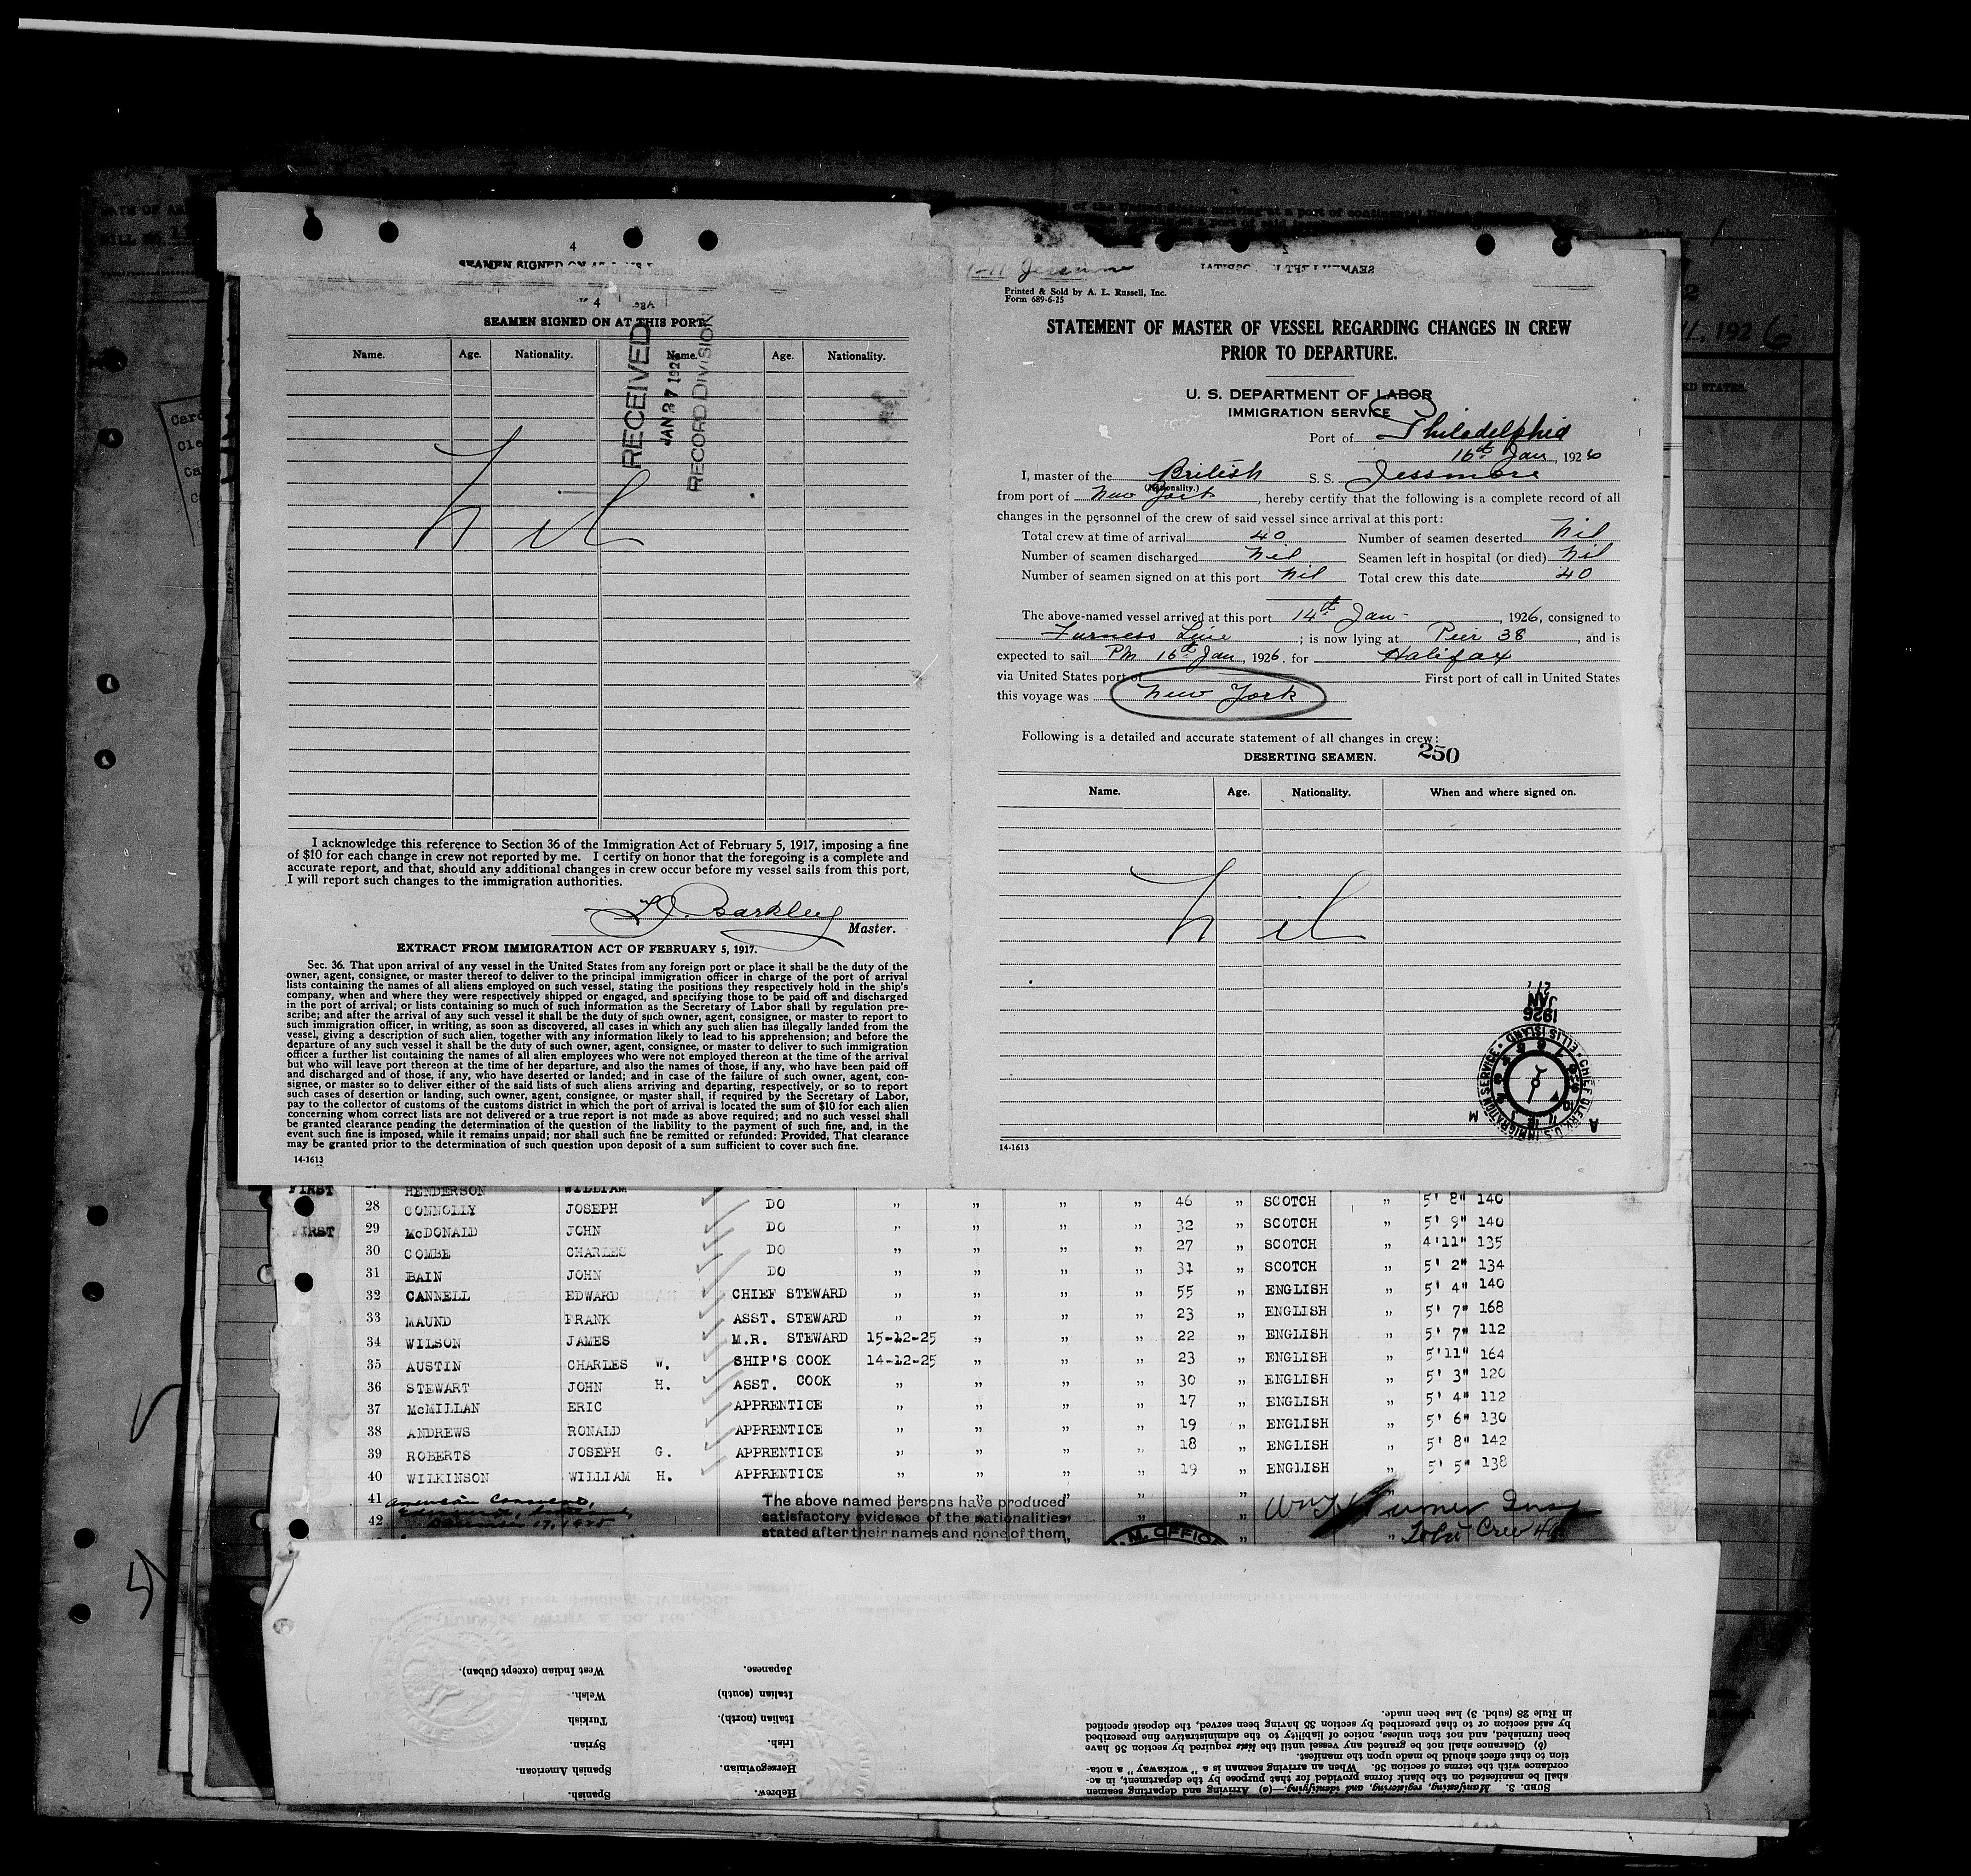 4
SEAMEN SIGNED ON AT THIS PORT
Name. Age. Nationality. Name. Age. Nationality.
RECEIVED
JAN 27 1926
RECORD DIVISION
Nil
I acknowledge this reference to Section 36 of the Immigration Act of February 5, 1917, imposing a fine
of $10 for each change in crew not reported by me. I certify on honor that the foregoing is a complete and
accurate report, and that, should any additional changes in crew occur before my vessel sails from this port,
I will report such changes to the immigration authorities.
Barkley
Master.
EXTRACT FROM IMMIGRATION ACT OF FEBRUARY 5, 1917.
Sec. 36. That upon arrival of any vessel in the United States from any foreign port or place it shall be the duty of the
owner, agent, consignee, or master thereof to deliver to the principal immigration officer in charge of the port of arrival
lists containing the names of all aliens employed on such vessel, stating the positions they respectively hold in the ship's
company, when and where they were respectively shipped or engaged, and specifying those to be paid off and discharged
in the port of arrival; or lists containing so much of such information as the Secretary of Labor shall by regulation pre-
scribe; and after the arrival of any such vessel it shall be the duty of such owner, agent, consignee, or master to report to
such immigration officer, in writing, as soon as discovered, all cases in which any such alien has illegally landed from the
vessel, giving a description of such alien, together with any information likely to lead to his apprehension; and before the
departure of any such vessel it shall be the duty of such owner, agent, consignee, or master to deliver to such immigration
officer a further list containing the names of all alien employees who were not employed thereon at the time of the arrival
but who will leave port thereon at the time of her departure, and also the names of those, if any, who have been paid off
and discharged and of those, if any, who have deserted or landed; and in case of the failure of such owner, agent, con-
signee, or master so to deliver either of the said lists of such aliens arriving and departing, respectively, or so to report
such cases of desertion or landing, such owner, agent, consignee, or master shall, if required by the Secretary of Labor,
pay to the collector of customs of the customs district in which the port of arrival is located the sum of $10 for each alien
concerning whom correct lists are not delivered or a true report is not made as above required; and no such vessel shall
be granted clearance pending the determination of the question of the liability to the payment of such fine, and, in the
event such fine is imposed, while it remains unpaid; nor shall such fine be remitted or refunded: Provided, That clearance
may be granted prior to the determination of such question upon deposit of a sum sufficient to cover such fine.
14-1613
Jessmore
Printed & Sold by A. L. Russell, Inc.
Form 689-6-25
STATEMENT OF MASTER OF VESSEL REGARDING CHANGES IN CREW
PRIOR TO DEPARTURE.
U. S. DEPARTMENT OF LABOR
IMMIGRATION SERVICE
Port of Philadelphia
16th Jan, 1926
I, master of the British S. S. Jessmore
(Nationality.)
from port of New York, hereby certify that the following is a complete record of all
changes in the personnel of the crew of said vessel since arrival at this port:
Total crew at time of arrival 40 Number of seamen deserted Nil
Number of seamen discharged Nil Seamen left in hospital (or died) Nil
Number of seamen signed on at this port Nil Total crew this date 40
The above-named vessel arrived at this port 14th Jan, 1926, consigned to
Furness Line; is now lying at Pier 38, and is
expected to sail PM 16th Jan, 1926. for Halifax
via United States port of First port of call in United States
this voyage was New York
Following is a detailed and accurate statement of all changes in crew:
DESERTING SEAMEN. 250
Name. Age. Nationality. When and where signed on.
Nil
JAN
1926
CHIEF CLERK U.S. IMMIGRATION SERVICE • ELLIS ISLAND
14-1613
FIRST HENDERSON WILLIAM
28 CONNOLLY JOSEPH DO " " " " 46 " SCOTCH " 5' 8" 140
FIRST 29 McDONALD JOHN DO " " " " 32 " SCOTCH " 5' 9" 140
30 COMBE CHARLES DO " " " " 27 " SCOTCH " 4'11" 135
31 BAIN JOHN DO " " " " 31 " SCOTCH " 5' 2" 134
32 CANNELL EDWARD CHIEF STEWARD " " " " 55 " ENGLISH " 5' 4" 140
33 MAUND FRANK ASST. STEWARD " " " " 23 " ENGLISH " 5' 7" 168
34 WILSON JAMES M.R. STEWARD 15-12-25 " " " 22 " ENGLISH " 5' 7" 112
35 AUSTIN CHARLES W. SHIP'S COOK 14-12-25 " " " 23 " ENGLISH " 5'11" 164
36 STEWART JOHN H. ASST. COOK " " " " 30 " ENGLISH " 5' 3" 120
37 McMILLAN ERIC APPRENTICE " " " " 17 " ENGLISH " 5' 4" 112
38 ANDREWS RONALD APPRENTICE " " " " 19 " ENGLISH " 5' 6" 130
39 ROBERTS JOSEPH G. APPRENTICE " " " " 18 " ENGLISH " 5' 8" 142
40 WILKINSON WILLIAM H. APPRENTICE " " " " 19 " ENGLISH " 5' 5" 138
41 American Consulate,
42
The above named persons have produced
satisfactory evidence of the nationalities
stated after their names and none of them
Turner Insp
Total Crew 40
West Indian (except Cuban).
Welsh.
Turkish
Syrian.
Spanish American.
Spanish.
Japanese.
Italian (south)
Italian (north).
Irish.
Herzegovinian.
Hebrew.
SUBD. 3. Manifesting, registering, and identifying.—(a) Arriving and departing seamen
shall be manifested on the blank forms provided for that purpose by the department, in ac-
cordance with the terms of section 36. When an arriving seaman is a "workaway" a nota-
tion to that effect should be made upon the manifest.
(b) Clearance shall not be granted any vessel until the lists required by section 36 have
been furnished, and not then unless, notice of liability to the administrative fine prescribed
by said section or to that prescribed by section 35 having been served, the deposit specified
in Rule 28 (subd. 3) has been made.